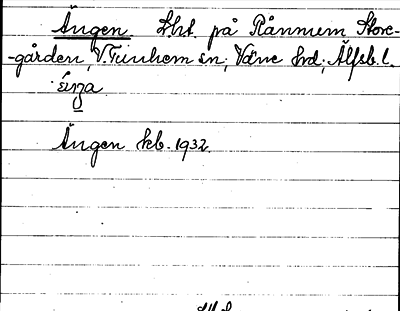 Ängen Lht. på Rånnum Store-
-gården, V. Tunhem sn; Väne hd; Älfsb. l.
Ängen kb. 1932.